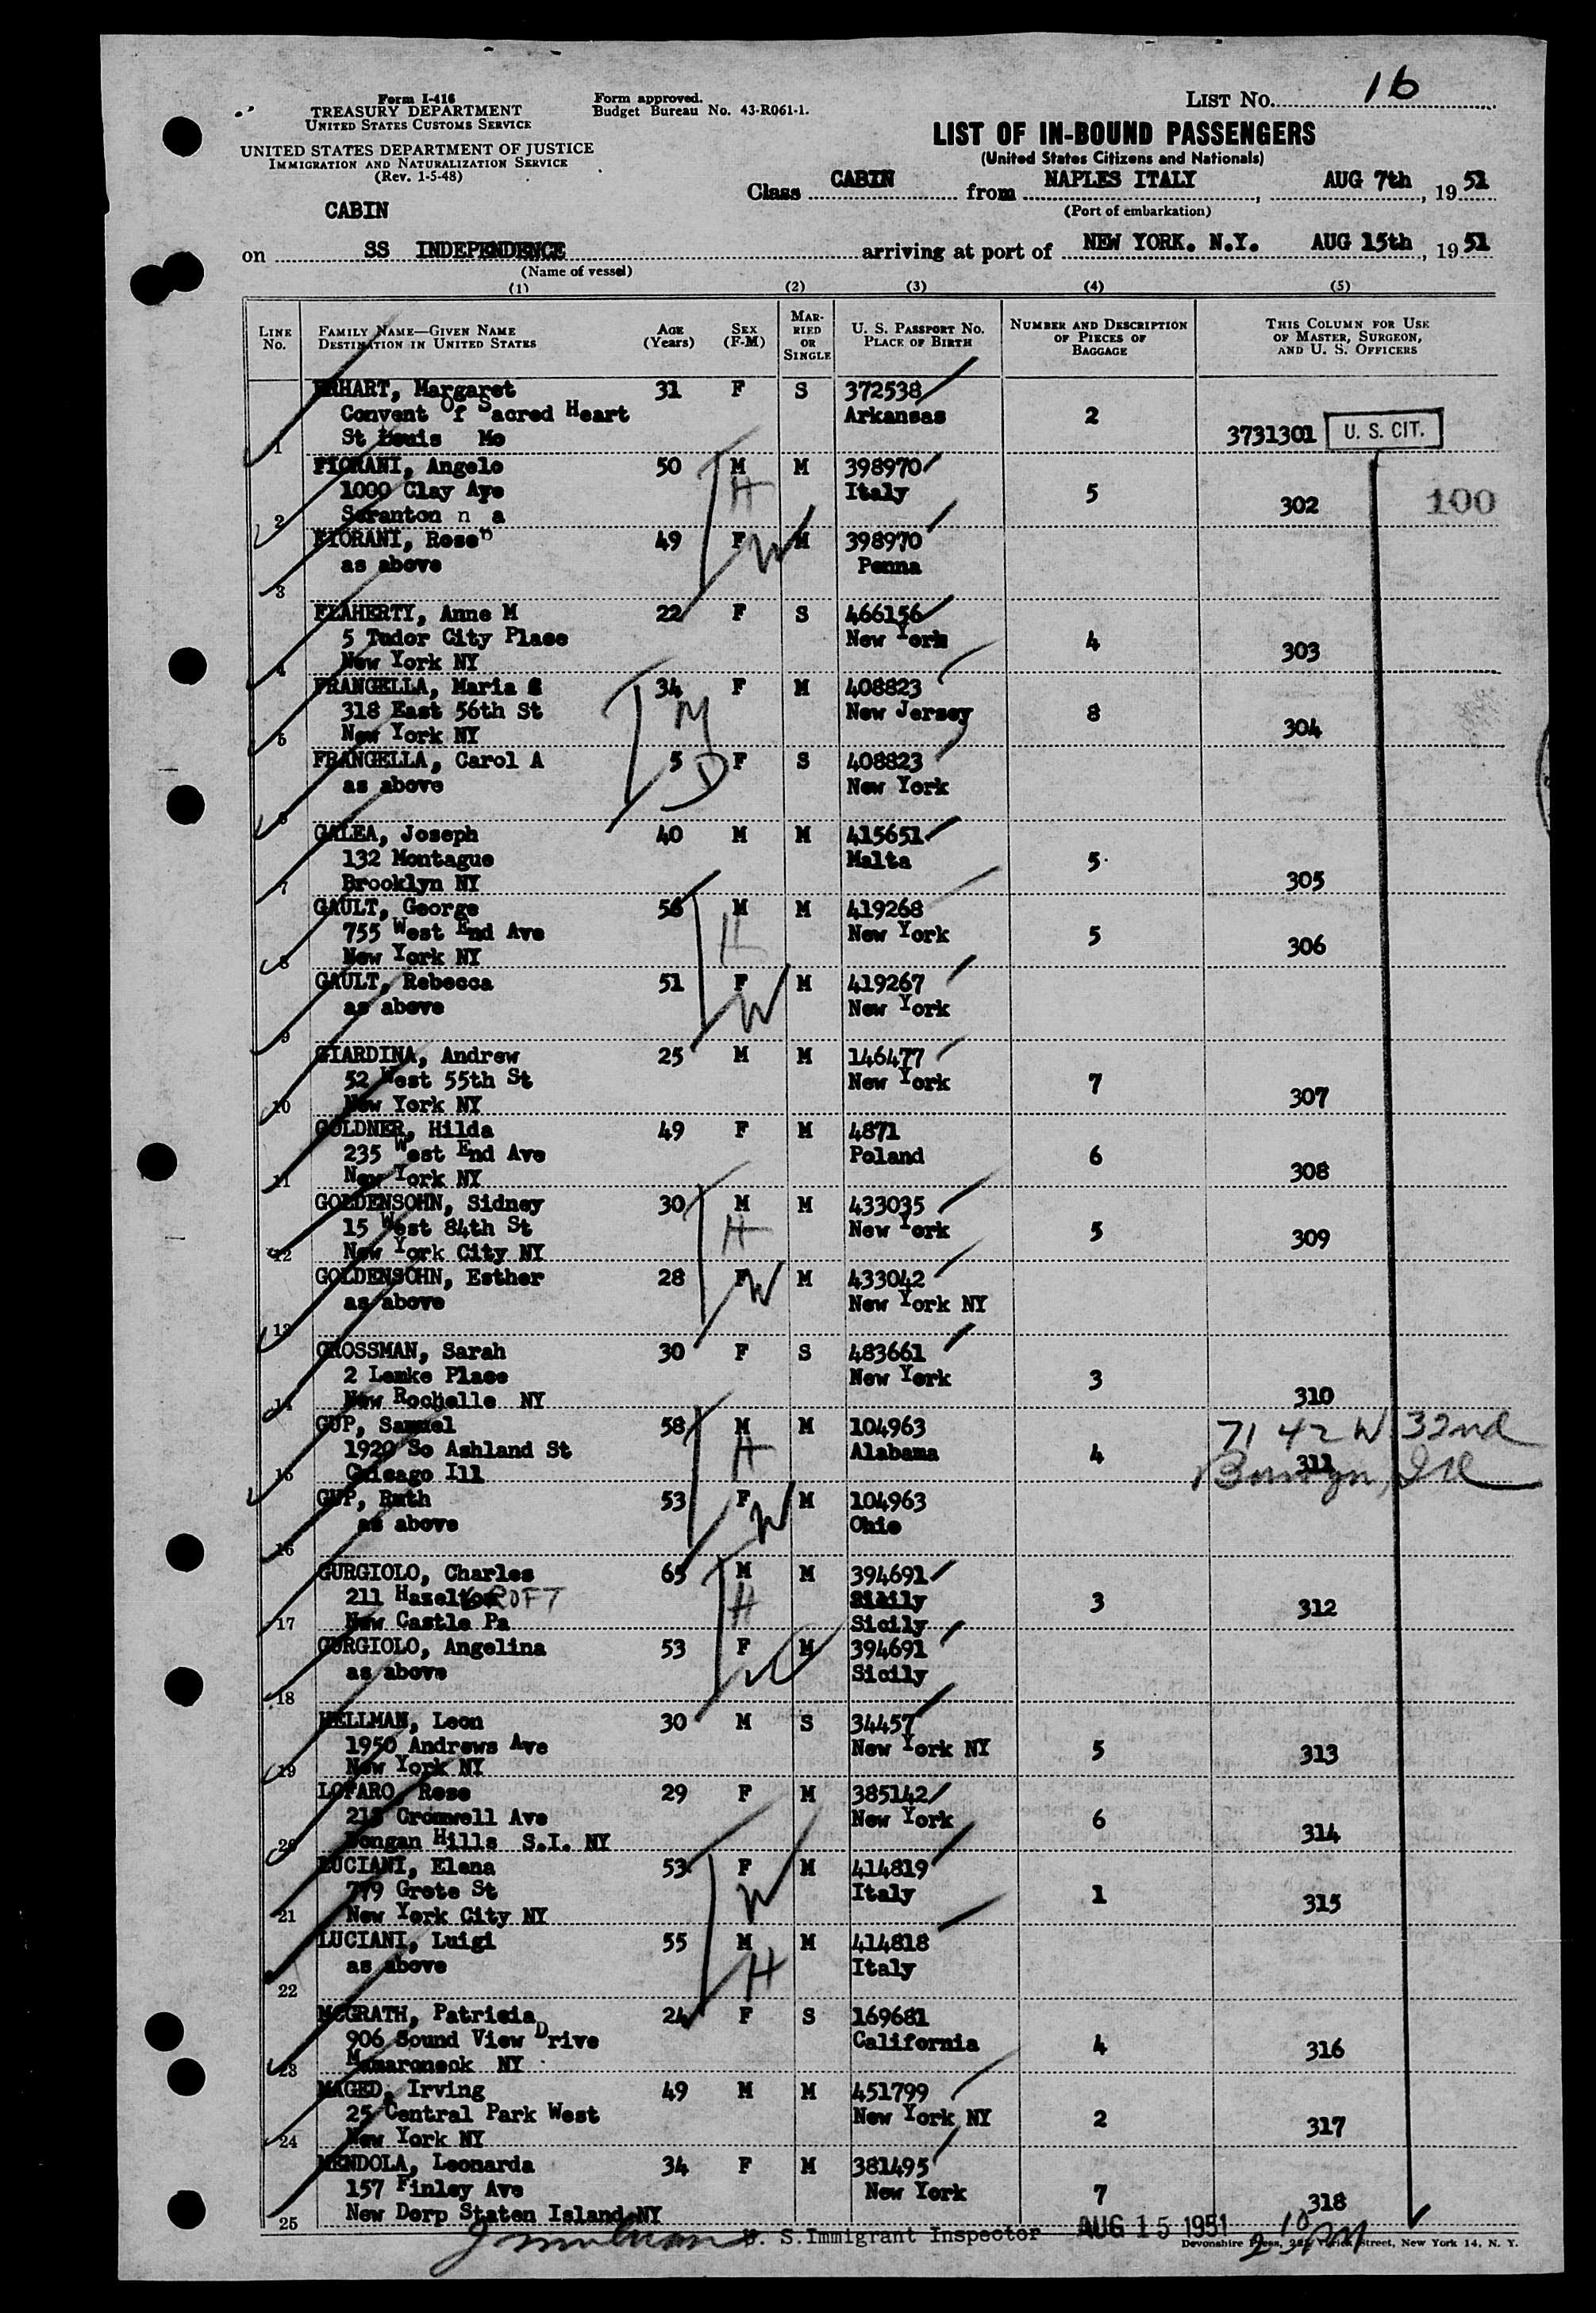 Form I-416
TREASURY DEPARTMENT
UNITED STATES CUSTOMS SERVICE
UNITED STATES DEPARTMENT OF JUSTICE
IMMIGRATION AND NATURALIZATION SERVICE
(Rev. 1-5-48)
Form approved.
Budget Bureau No. 43-R061-1.
LIST No. 16
LIST OF IN-BOUND PASSENGERS
(United States Citizens and Nationals)
Class CABIN from NAPLES ITALY, AUG 7th, 1951
(Port of embarkation)
CABIN
on SS INDEPENDENCE arriving at port of NEW YORK. N.Y. AUG 15th, 1951
(Name of vessel)
(1) (2) (3) (4) (5)
LINE No. FAMILY NAME—GIVEN NAME DESTINATION IN UNITED STATES AGE (Years) SEX (F-M) MARRIED OR SINGLE U. S. PASSPORT No. PLACE OF BIRTH NUMBER AND DESCRIPTION OF PIECES OF BAGGAGE THIS COLUMN FOR USE OF MASTER, SURGEON, AND U. S. OFFICERS
ERHART, Margaret 31 F S 372538
Convent Of Sacred Heart Arkansas 2
1 St Louis Mo 3731301 U. S. CIT.
FIORANI, Angelo 50 M M 398970
H
1000 Clay Ave Italy 5 302 100
2 Scranton
FIORANI, Rose 49 F M 398970
W
as above Penna
3
FLAHERTY, Anne M 22 F S 466156
5 Tudor City Place New York 4
4 New York NY 303
FRANGELLA, Maria 34 F M 408823
M
318 East 56th St New Jersey 8
5 New York NY 304
FRANGELLA, Carol A 5 F S 408823
D
as above New York
6
GALEA, Joseph 40 M M 415651
132 Montague Malta 5
7 Brooklyn NY 305
GAULT, George 56 M M 419268
H
755 West End Ave New York 5 306
8 New York NY
GAULT, Rebecca 51 F M 419267
W
as above New York
9
GIARDINA, Andrew 25 M M 146477
52 West 55th St New York 7
10 New York NY 307
GOLDNER, Hilda 49 F M 4871
235 West End Ave Poland 6
11 New York NY 308
GOLDENSOHN, Sidney 30 M M 433035
H
15 West 84th St New York 5 309
12 New York City NY
GOLDENSOHN, Esther 28 F M 433042
W
as above New York NY
13
GROSSMAN, Sarah 30 F S 483661
2 Lemke Place New York 3
14 New Rochelle NY 310
GUP, Samuel 58 M M 104963 7142 W 32nd
H
1920 So Ashland St Alabama 4 311 Berwyn, Ill
15 Chicago Ill
GUP, Ruth 53 F M 104963
W
as above Ohio
16
GURGIOLO, Charles 65 M M 394691
H
211 Hazelcroft Sicily 3 312
17 New Castle Pa Sicily
GURGIOLO, Angelina 53 F M 394691
W
as above Sicily
18
HELLMAN, Leon 30 M S 34457
1950 Andrews Ave New York NY 5 313
19 New York NY
LOFARO, Rose 29 F M 385142
Cromwell Ave New York 6
20 Dongan Hills S.I. NY 314
LUCIANI, Elena 53 F M 414819
W
779 Grote St Italy 1 315
21 New York City NY
LUCIANI, Luigi 55 M M 414818
H
as above Italy
22
MCGRATH, Patricia 24 F S 169681
906 Sound View Drive California 4 316
23 Mamaroneck NY
MAGED, Irving 49 M M 451799
25 Central Park West New York NY 2 317
24 New York NY
MENDOLA, Leonarda 34 F M 381495
157 Finley Ave New York 7 318
25 New Dorp Staten Island NY
U. S. Immigrant Inspector AUG 15 1951
Devonshire Press, Varick Street, New York 14, N. Y.